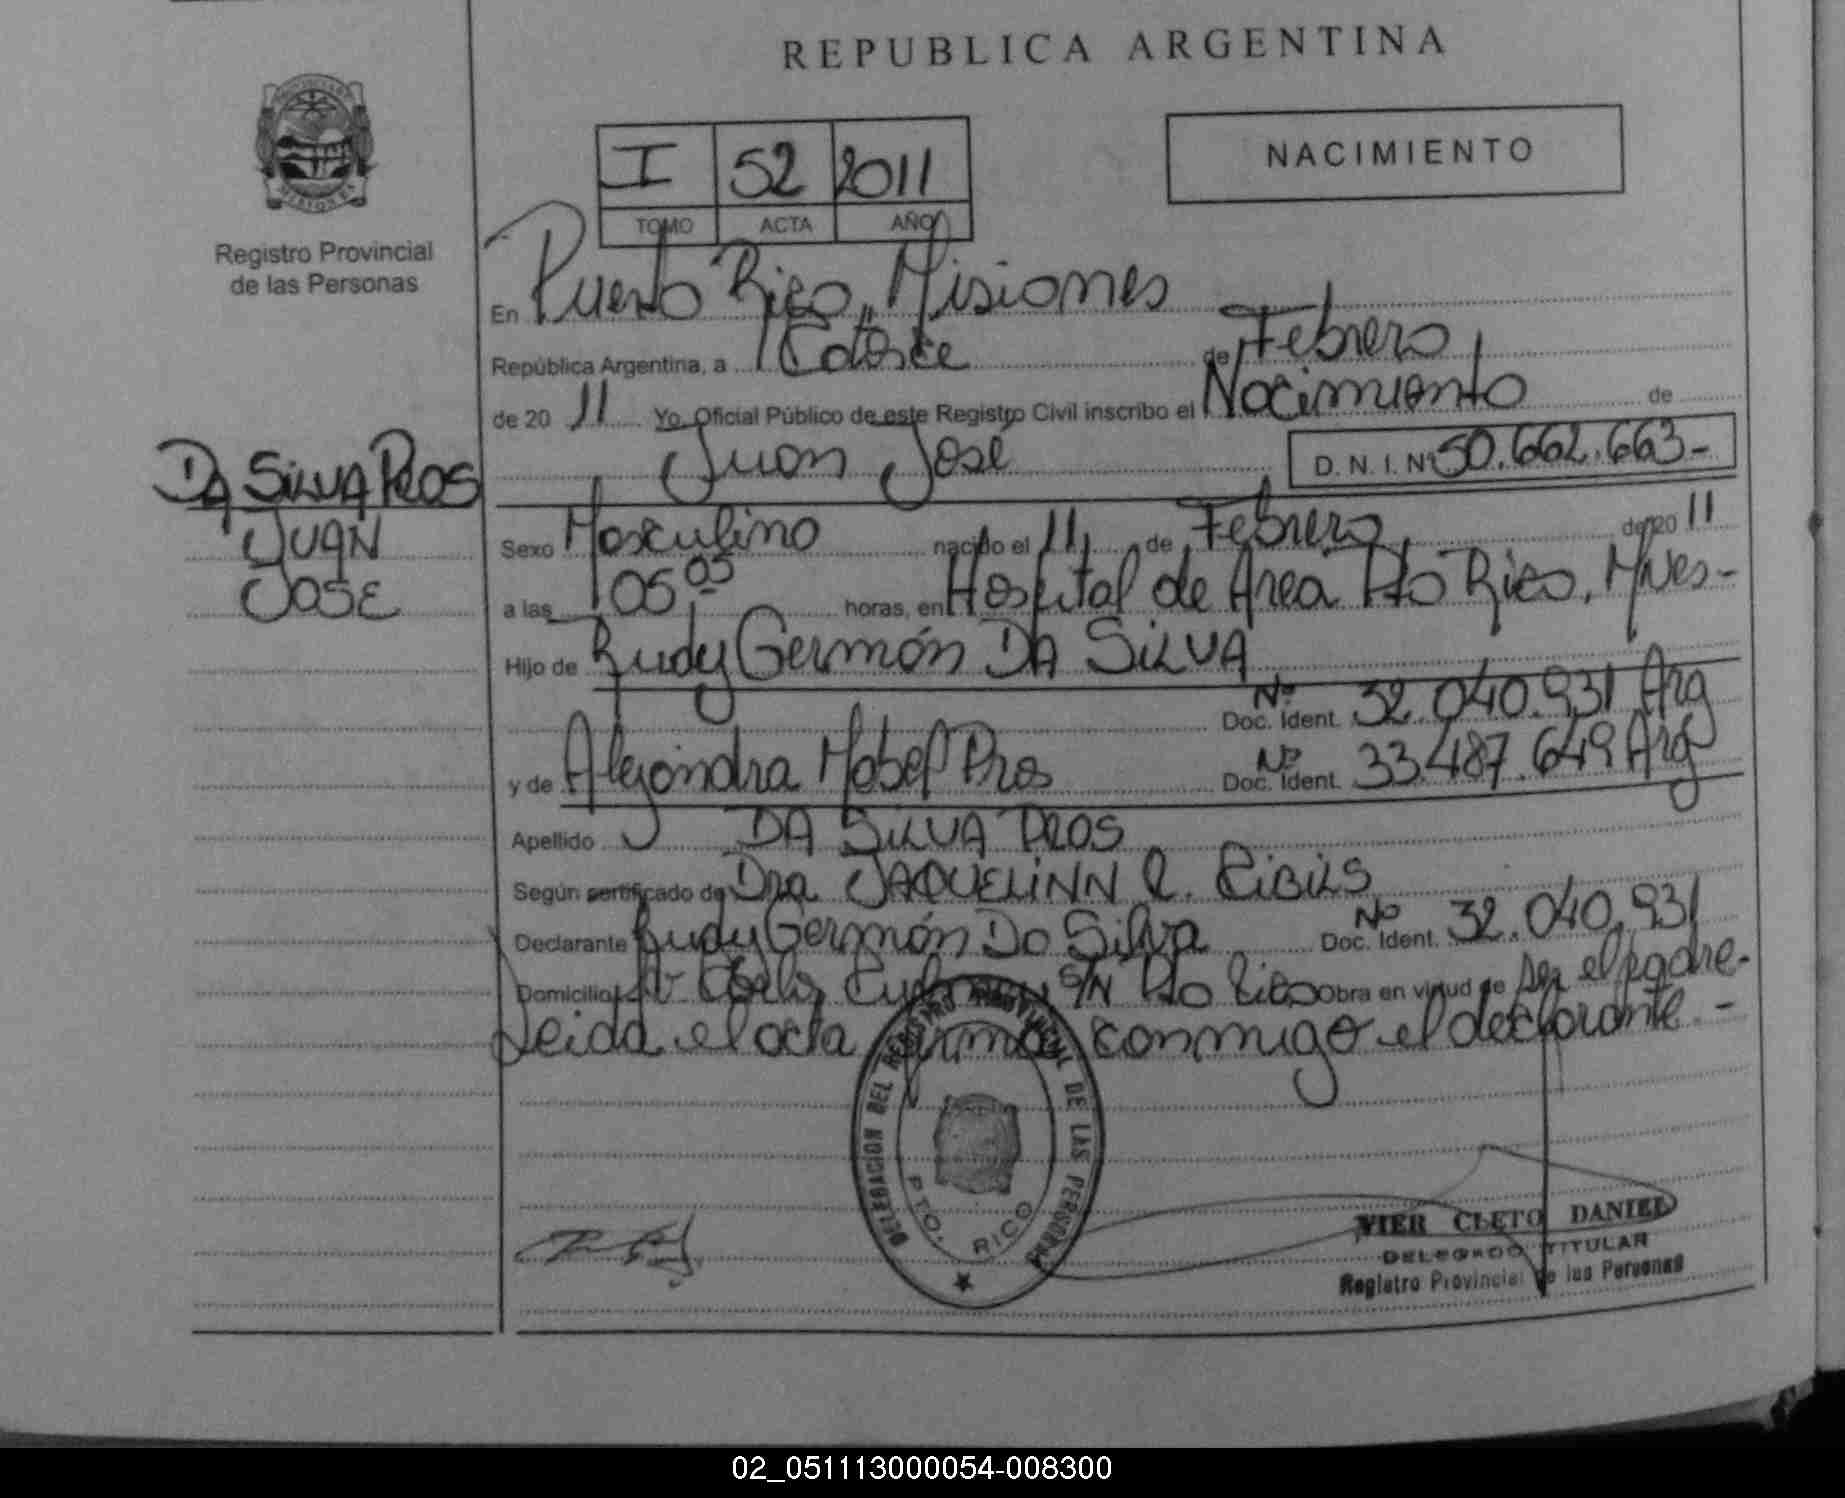 REPUBLICA ARGENTINA
I 52 2011
TOMO ACTA AÑO
NACIMIENTO
Registro Provincial
de las Personas
En Puerto Rico, Misiones
República Argentina, a Catorce de Febrero
de 20 11 Yo, Oficial Público de este Registro Civil inscribo el Nacimiento de
Juan José D. N. I. Nº 50.662.663-
DA SILVA PROS
JUAN
JOSE
Sexo Masculino nacido el 11 de Febrero de 20 11
a las 05 05 horas, en Hospital de Area Pto Rico, Mnes-
Hijo de Rudy Germán DA SILVA
Nº Doc. Ident. 32.040.931 Arg
y de Alejandra Mabel Pros Nº Doc. Ident. 33.487.649 Arg
Apellido DA SILVA PROS
Según sertificado de Dra JAQUELINN R. RIBILS
Declarante Rudy Germán Da Silva Nº Doc. Ident. 32.040.931
Domicilio Av S/N Pto Rico Obra en virtud de ser el padre.
Leida el acta firma conmigo el declarante.-
DELEGACION DEL REGISTRO PROVINCIAL DE LAS PERSONAS
PTO. RICO
VIER CLETO DANIEL
DELEGADO TITULAR
Registro Provincial de las Personas
02_051113000054-008300